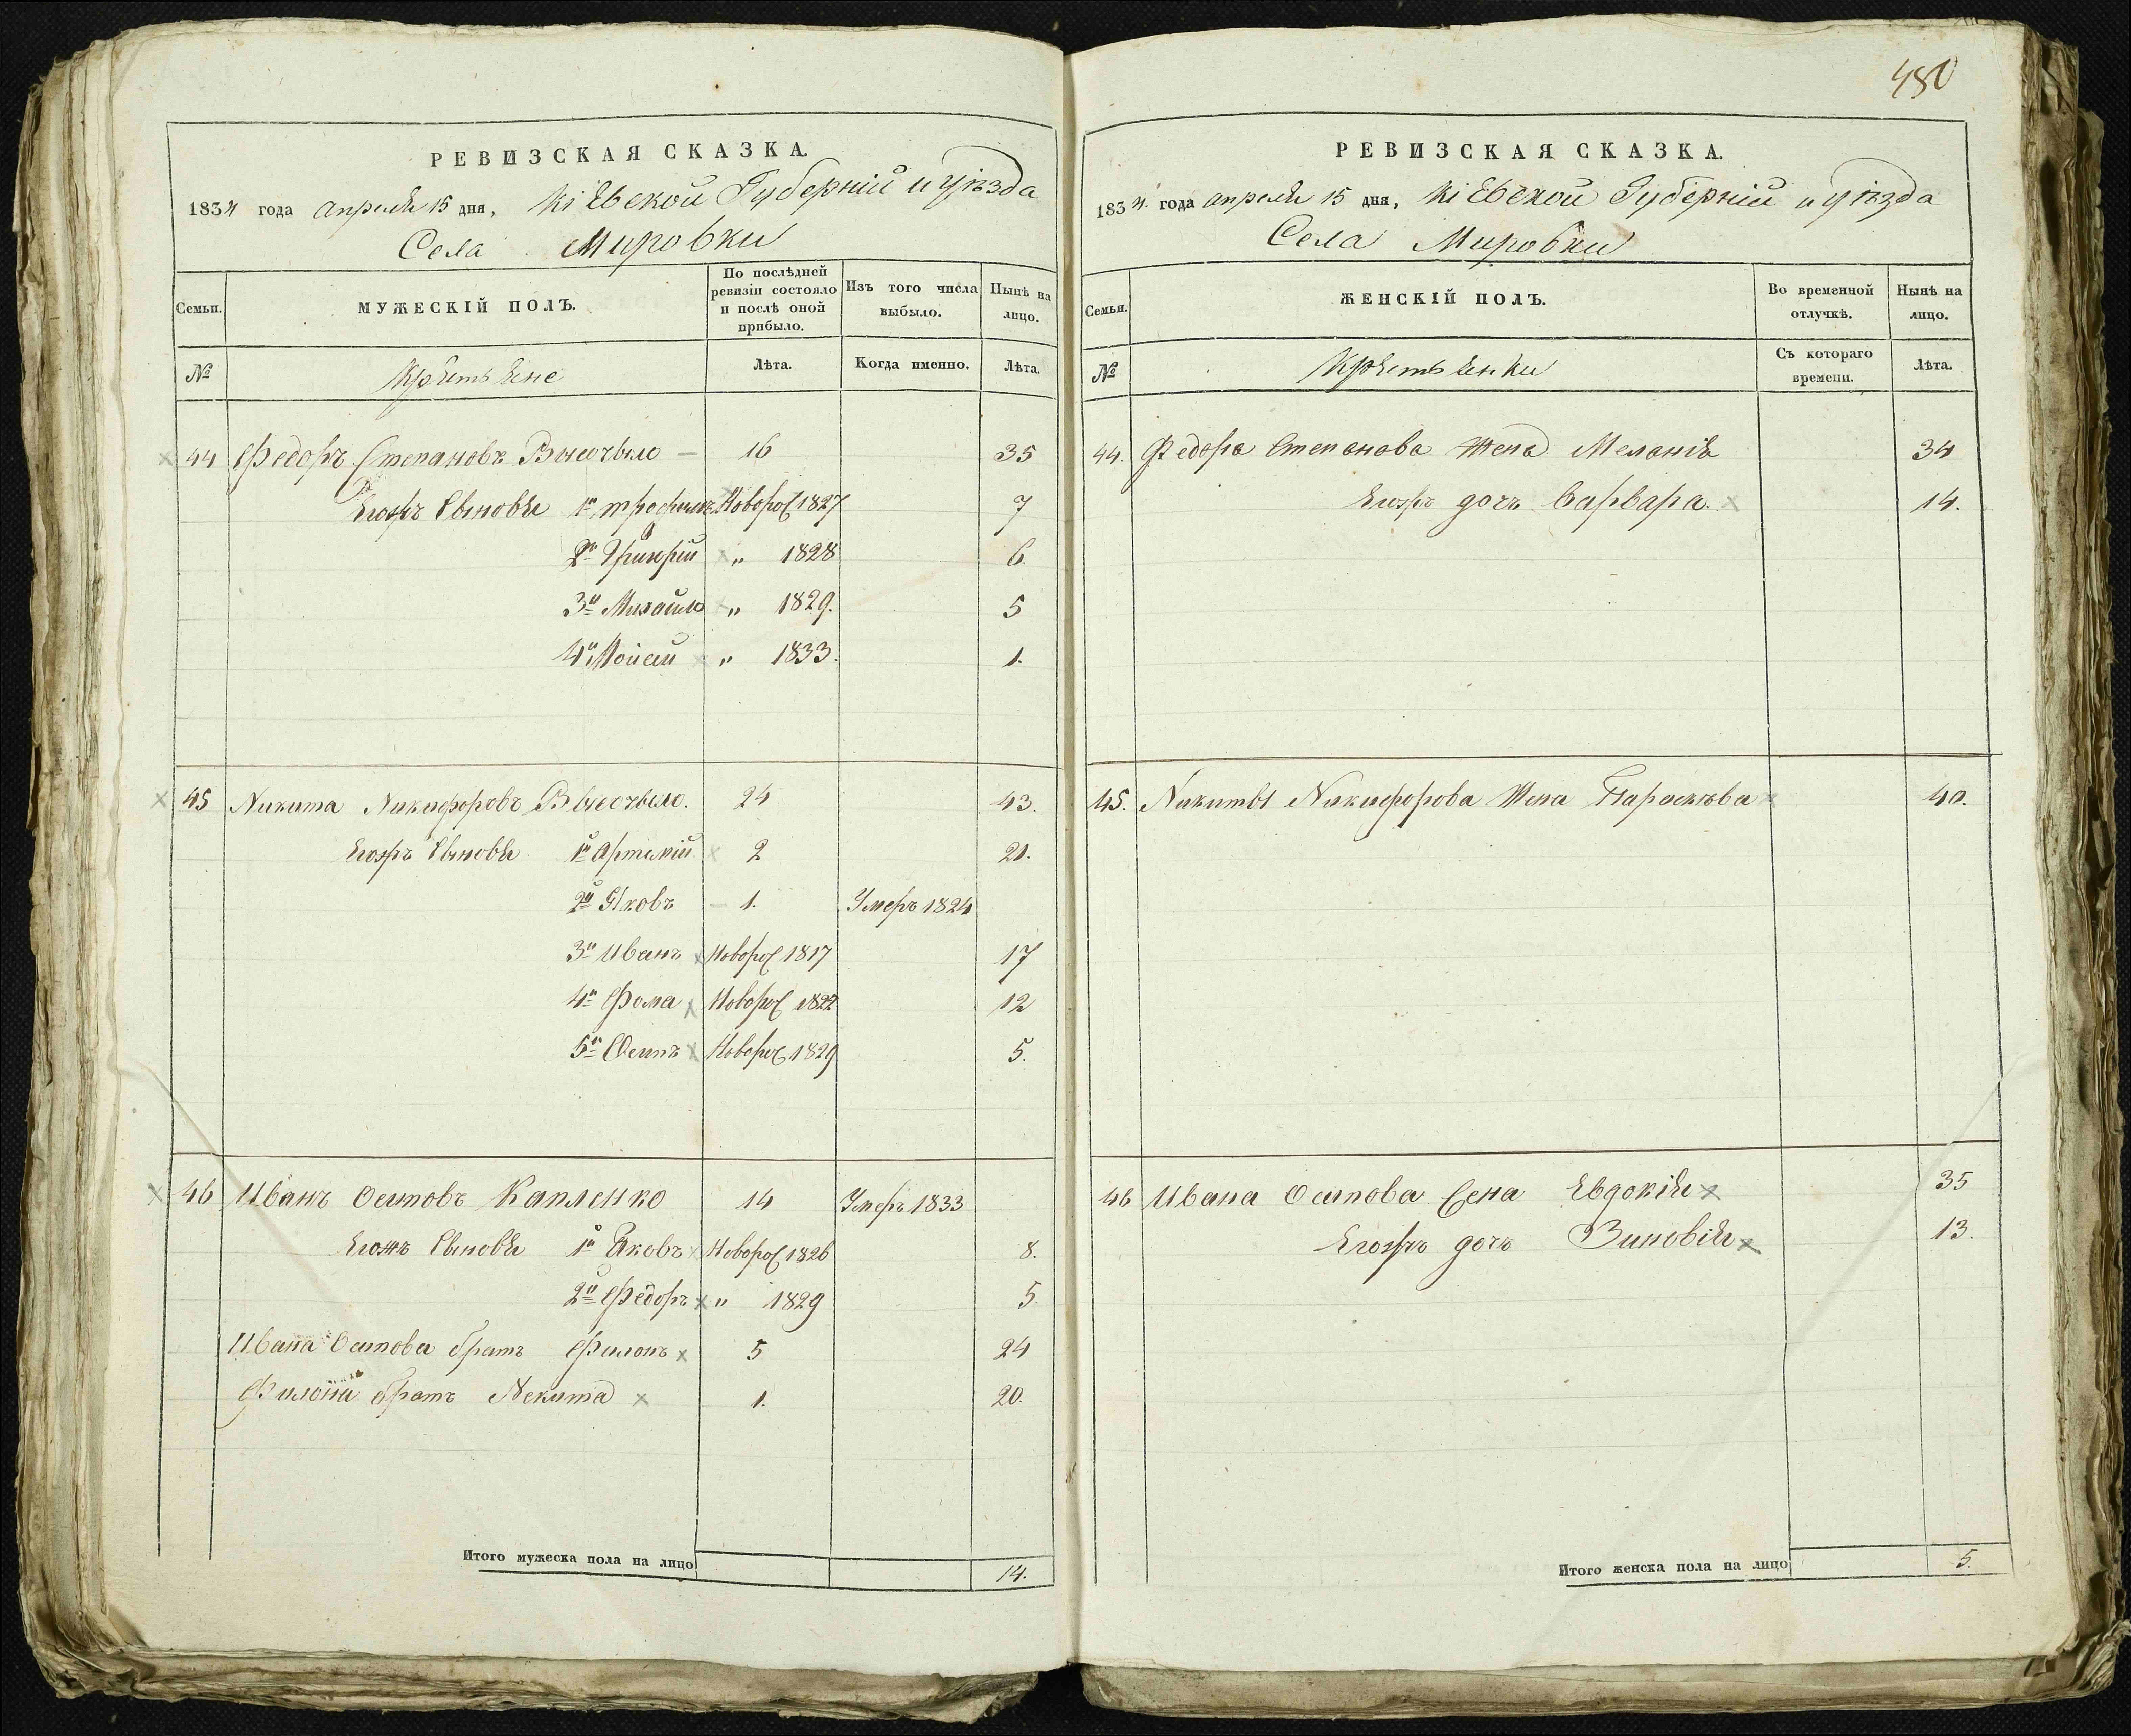 480
РЕВИЗСКАЯ СКАЗКА.
1834 года апреля 15 дня, Кіевской Губерніи и уѣзда
Села Мировки
Семьи.
МУЖЕСКІЙ ПОЛЪ.
По послѣдней ревизіи состояло и послѣ оной прибыло.
Изъ того числа выбыло.
Нынѣ на лицо.
№
Крѣстьяне
Лѣта.
Когда именно.
Лѣта.
44 Федоръ Степановъ Высочыло — 16 35
Егожъ Сыновья 1й трофимъ Новорож 1827 7
2й Григорій „ 1828 6.
3й Михайло „ 1829. 5
4й Мойсей „ 1833. 1.
45 Никита Никифоровъ Высочыло. 24 43.
Егожъ Сыновья 1й Артемій 2 21.
2й Яковъ — 1. Умеръ 1824
3й Иванъ Новорож 1817 17
4й Фома Новорож 1822 12
5й Осипъ Новорож 1829 5.
46 Иванъ Осиповъ Капленко 14 Умеръ 1833
Егожъ Сыновья 1й Яковъ Новорож 1826 8.
2й Федоръ „ 1829 5.
Ивана Осипова братъ Филонъ 5 24
Филона братъ Некита 1. 20.
Итого мужеска пола на лицо 14.
РЕВИЗСКАЯ СКАЗКА.
1834 года апреля 15 дня, Кіевской Губерніи и уѣзда
Села Мировки
Семьи.
ЖЕНСКІЙ ПОЛЪ.
Во временной отлучкѣ.
Нынѣ на лицо.
№
Крѣстьянки
Съ котораго времени.
Лѣта.
44. Федора Степанова жена Меланія 34
Егожъ дочь Варвара. 14.
45. Никиты Никифорова Жена Параскѣва 40.
46 Ивана Осипова Жена Евдокія 35
Егожъ дочь Зиновія 13.
Итого женска пола на лицо 5.